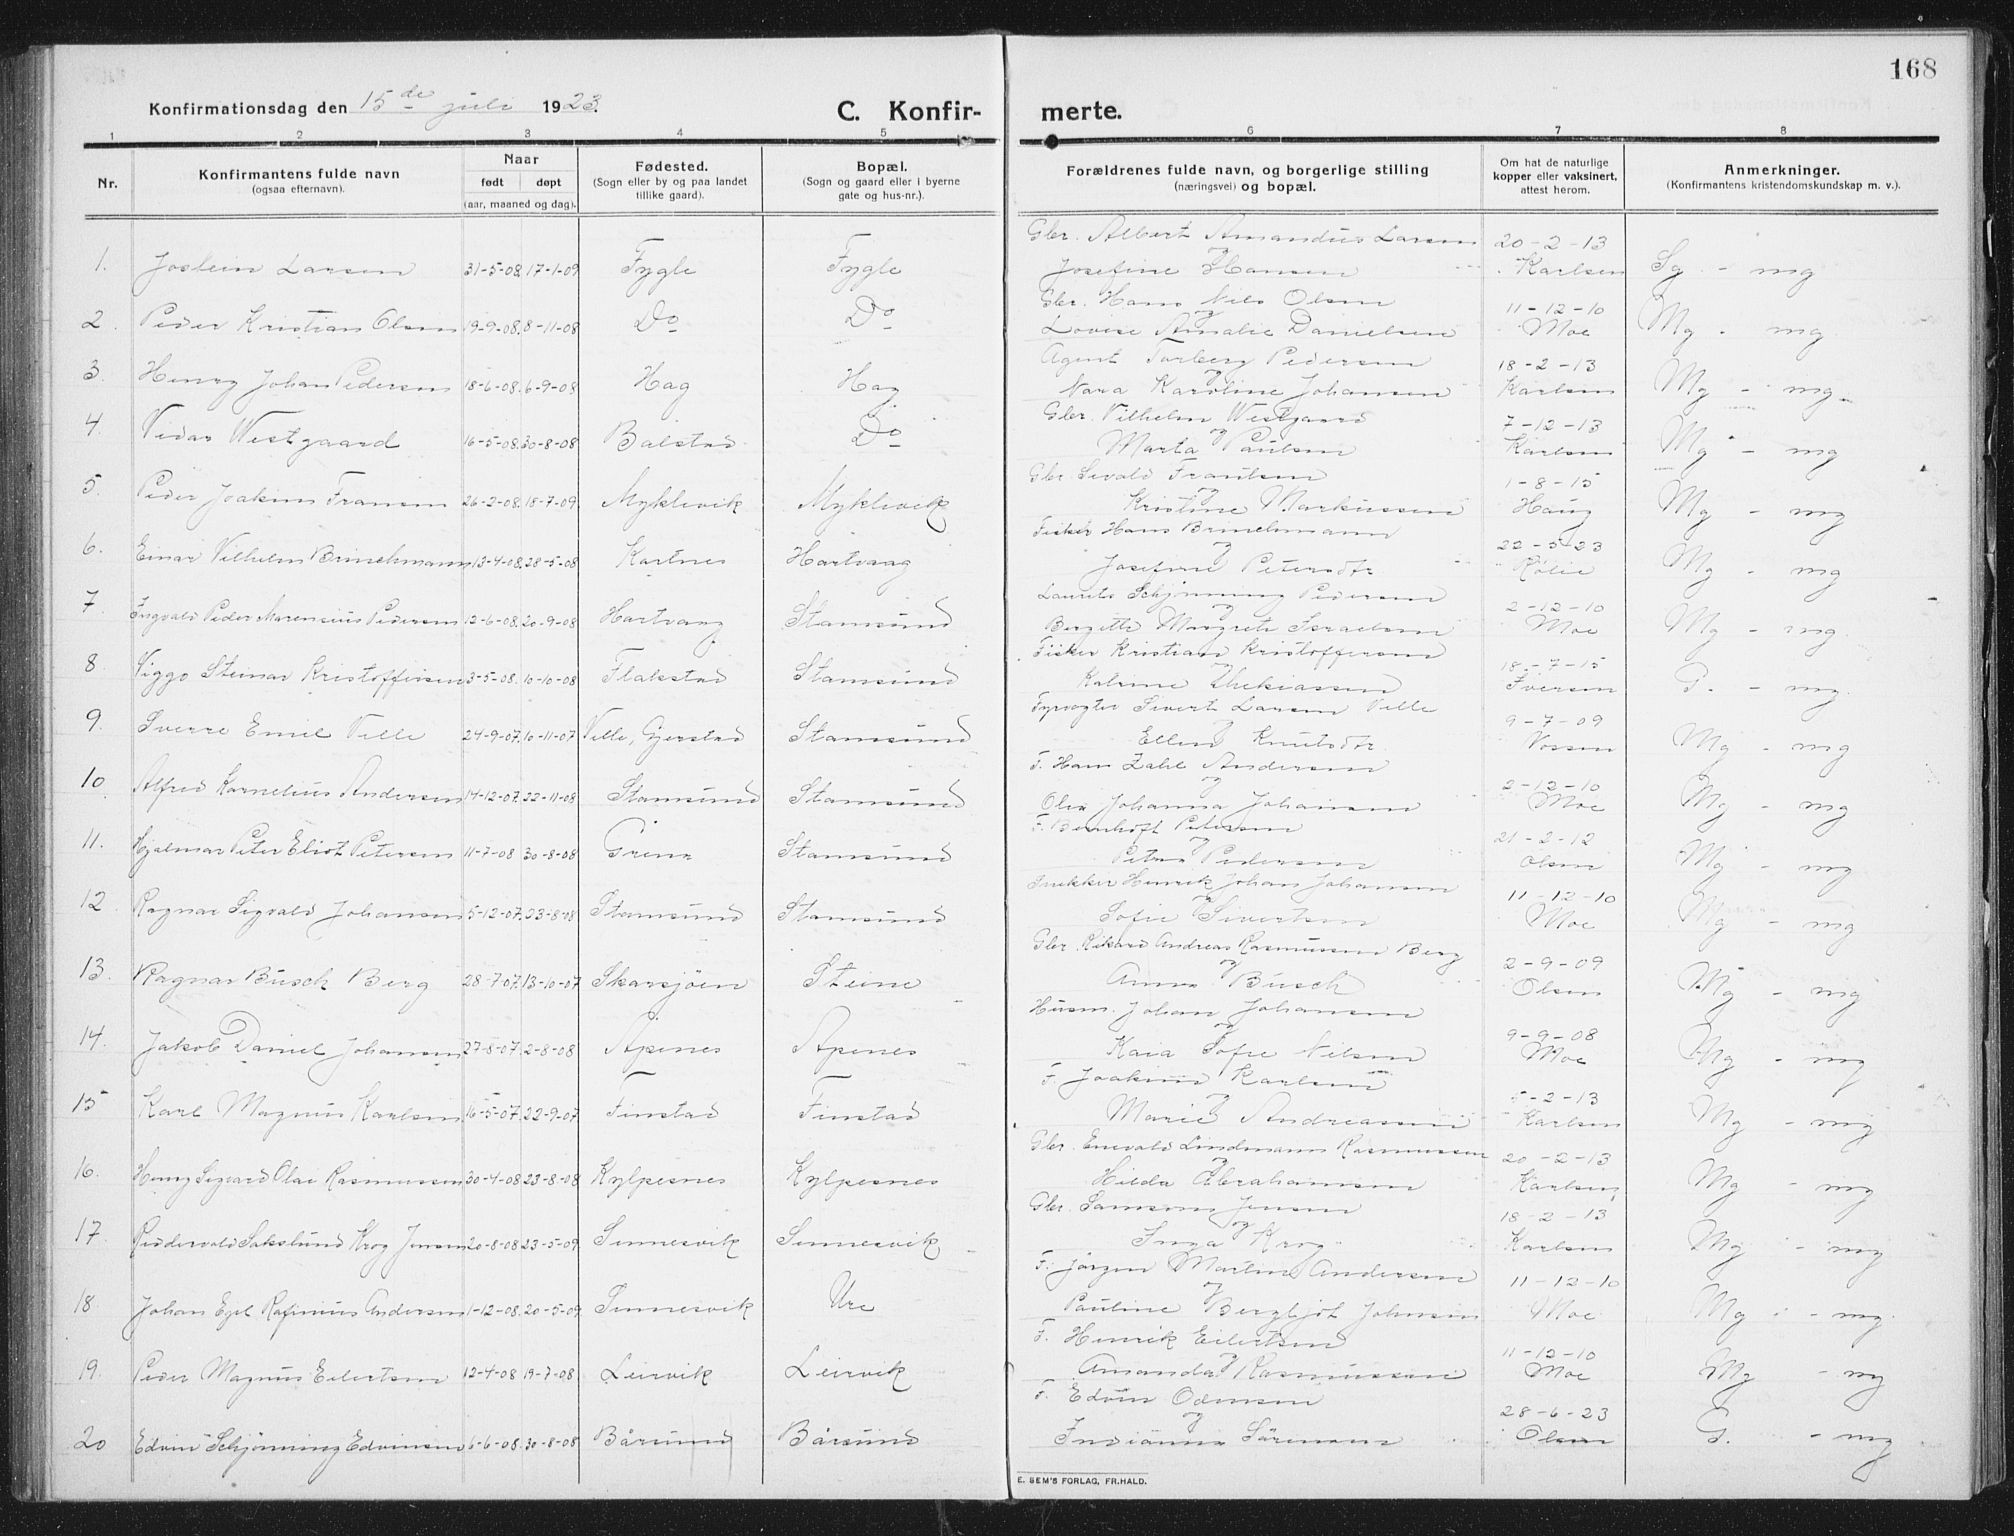 168
Konfirmationsdag den 15 de juli 1923.
C. Konfir- merte.
1 2 3 4 5 6 7 8
Nr.
Konfirmantens fulde navn
(ogsaa efternavn).
Naar
født døpt
(aar, maaned og dag).
Fødested.
(Sogn eller by og paa landet
tillike gaard).
Bopæl.
(Sogn og gaard eller i byerne
gate og hus-nr.).
Forældrenes fulde navn, og borgerlige stilling
(næringsvei) og bopæl.
Om hat de naturlige
kopper eller vaksinert,
attest herom.
Anmerkninger.
(Konfirmantens kristendomskundskap m. v.).
Gbr. Albert Amandus Larsen 20-2-13
1. Jostein Larsen 31-5-08 17-1-09 Fygle Fygle og Josefine Hansen Karlsen Sg - mg
Gbr. Hans Nils Olsen 11-12-10
2. Peder Kristian Olsen 19-9-08 8-11-08 Do Do og Lovise Amalie Danielsen Moe Mg - mg
Agent Torberg Pedersen 18-2-13
3. Henry Johan Pedersen 18-6-08 6-9-08 Hag Hag og Nora Karoline Johansen Karlsen Mg - mg
Gbr. Vilhelm Westgaard 7-12-13
4. Vidar Westgaard 16-5-08 30-8-08 Balstad Do og Marta Paulsen Karlsen Mg - mg
Gbr. Sevald Frantsen 1-8-15
5. Peder Joakim Fransen 26-2-08 18-7-09 Myklevik Myklevik og Kristine Markussen Haug Mg - mg
Fisker Hans Brinchmann 22-5-23
6. Einar Vilhelm Brinchmann 13-4-08 28-5-08 Kartnes Hartvaag og Josefine Petersdtr Kølie Mg - mg
Laurits Schjønning Pedersen 2-12-10
7. Ingvald Peder Marensius Pedersen 12-6-08 20-9-08 Hartvaag Stamsund og Bergitte Margrete Israelsen Moe Mg - mg
Fisker Kristian Kristoffersen 18-7-15
8. Viggo Steinar Kristoffersen 3-5-08 10-10-08 Flakstad Stamsund og Katrine Zhekiassen Iversen T. - mg
Fyrvogter Sivert Larsen Velle 9-7-09
9. Sverre Emil Velle 24-9-07 10-11-07 Velle, Gjerstad Stamsund og Ellen Knutsdtr Vossen Mg - mg
F. Hans Zahl Andersen 2-12-10
10. Alfred Kornelius Andersen 14-12-07 22-11-08 Stamsund Stamsund og Olea Johanna Johansen Moe Mg - mg
F. Bernhoft Petersen 21-2-12
11. Hjalmar Peter Eliot Petersen 11-7-08 30-8-08 Grena Stamsund og Petra Pedersen Olsen Mg - mg
Snekker Henrik Johan Johansen 11-12-10
12. Ragnar Sigvald Johansen 5-12-07 23-8-08 Stamsund Stamsund og Sofie Sivertsen Moe Mg - mg
Gbr. Rikard Andreas Rasmussen Berg 2-9-09
13. Ragnar Busch Berg 28-7-07 13-10-07 Skarsjøen Steine og Anna Busch Olsen Mg - mg
Husm. Johan Johansen 9-9-08
14. Jakob Daniel Johansen 27-8-07 2-8-08 Apenes Apenes og Kaia Sofie Nilsen Moe Mg - mg
F. Joakim Karlsen 5-2-13
15 Karl Magnus Karlsen 16-5-07 22-9-07 Finstad Finstad og Marie Andreassen Karlsen Mg - mg
Gbr. Enevald Lindemann Rasmussen 20-2-13
16. Henry Sigvard Olai Rasmussen 30-4-08 23-8-08 Kylpesnes Kylpesnes og Hilda Abrahamsen Karlsen Mg - mg
Gbr. Samson Jensen 18-2-13
17. Reidervald Sakslund Krog Jensen 20-8-08 23-5-09 Sennesvik Sennesvik og Inga Krog Karlsen Mg - mg
F. Jørgen Martin Andersen 11-12-10
18. Johan Egil Rafinius Andersen 1-12-08 20-5-09 Sennesvik Ure og Pauline Bergljot Johnsen Moe Mg - mg
F. Henrik Eilertsen 11-12-10
19. Peder Magnus Eilertsen 12-4-08 19-7-08 Leirvik Leirvik og Amanda Rasmussen Moe Mg - mg
F. Edvin Odensen 28-6-23
20 Edvin Schjønning Edvinsen 6-6-08 30-8-08 Bårsund Bårsund og Indianna Sørensen Olsen T. - mg
E. SEM'S FORLAG, FR.HALD.